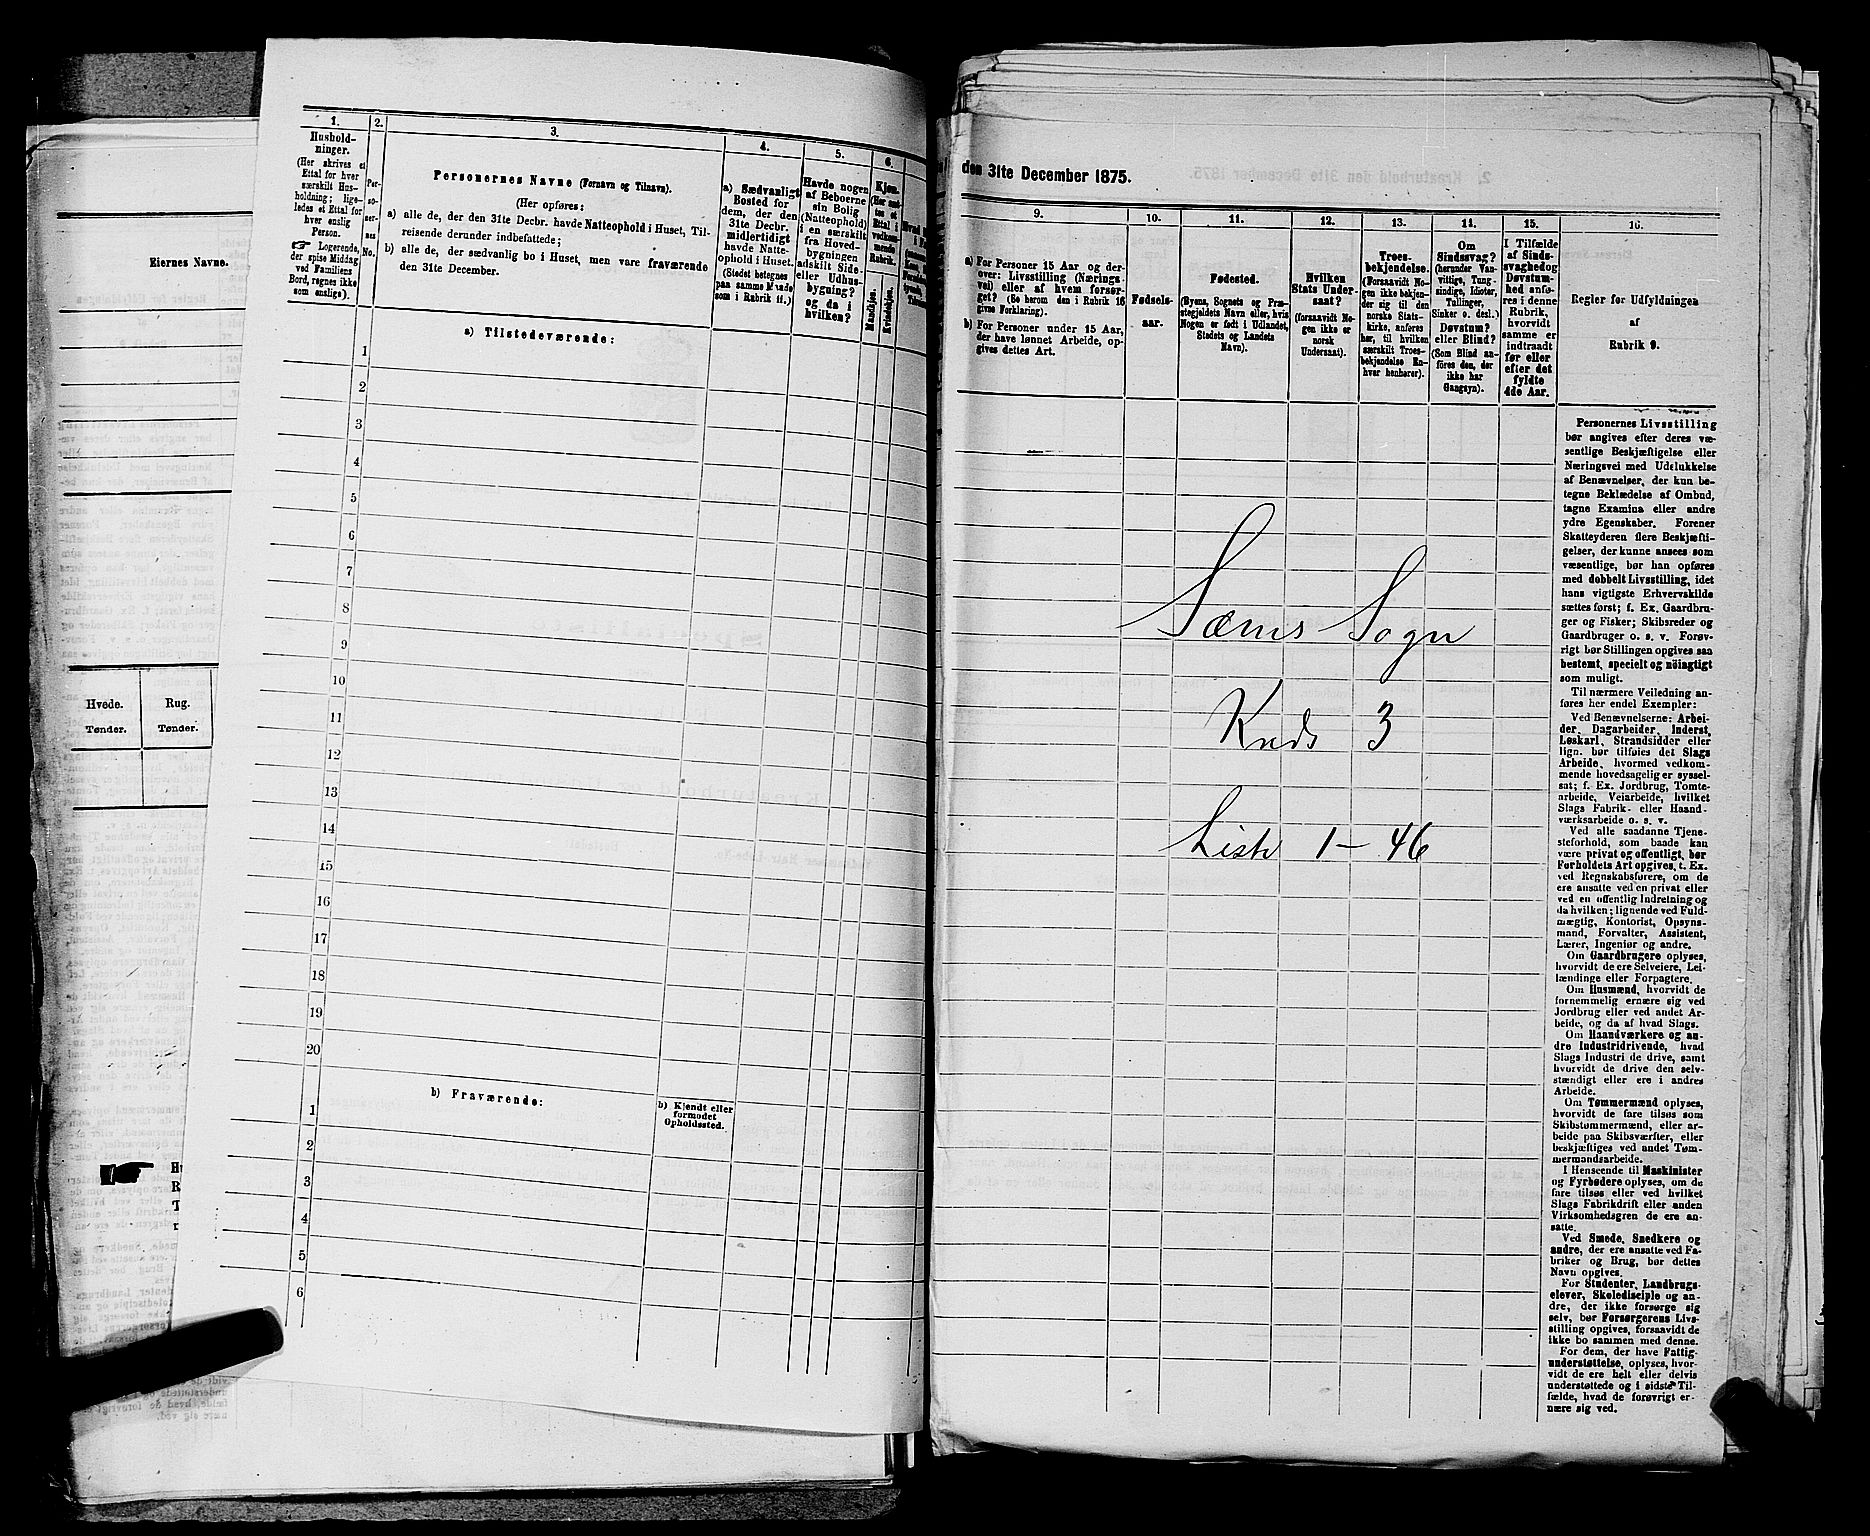 Eiernes Navne.
Hvede.
Rug.
Tønder.
Tønder.
1.
2.
3.
4.
5.
6.
Hushold-
ninger.
(Her skrives et
Ettal for hver
særskilt Hus-
holdning; lige-
ledes et Ettal for
hver enslig
Person.
☞ Logerende,
der spise Middag
ved Familiens
Bord, regnes ikke
som enslige).
Per-
so-
ner-
nes
No.
Personernes Navne (Fornavn og Tilnavn).
(Her opføres:
a) alle de, der den 31te Decbr. havde Natteophold i Huset, Til-
reisende derunder indbefattede;
b) alle de, der sædvanlig bo i Huset, men vare fraværende
den 31te December.
a) Sædvanligt
Bosted for
dem, der den
31te Decbr.
midlertidigt
havde Natte-
ophold i Huset.
(Stedet betegnes
paa samme Maade
som i Rubrik 11.)
Havde nogen
af Beboerne
sin Bolig
(Natteophold)
i en særskilt
fra Hoved-
bygningen
adskilt Side-
eller Udhus-
bygning?
og da i
hvilken?
Kjøn.
(Her sæt-
tes et
Ettal i
vedkom-
mende
Rubrik.
Mandkjøn.
Kvindekjøn.
a) Tilstedeværende:
1
2
3
4
5
6
7
8
9
10
11
12
13
14
15
16
17
18
19
20
b) Fraværende:
b) Kjendt eller
formodet
Opholdssted.
1
2
3
4
5
6
den 31te December 1875.
9.
10.
11.
12.
13.
14.
15.
16.
a) For Personer 15 Aar og der-
over: Livsstilling (Nærings-
vei) eller af hvem forsør-
get? (Se herom den i Rubrik 16
givne Forklaring).
b) For Personer under 15 Aar,
der have lønnet Arbeide, op-
gives dettes Art.
Fødsels-
aar.
Fødested.
(Byens, Sognets og Præ-
stegjeldets Navn eller, hvis
Nogen er født i Udlandet,
Stedets og Landets
Navn).
Hvilken
Stats Under-
saat?
(forsaavidt No-
gen ikke er
norsk
Undersaat).
Troes-
bekjendelse.
(Forsaavidt No-
gen ikke bekjen-
der sig til den
norske Stats-
kirke, anføres
her, til hvilken
særskilt Troes-
bekjendelse En-
hver henhører).
Om
Sindssvag?
(herunder Van-
vittige, Tung-
sindige, Idioter,
Tullinger,
Sinker o. desl.)
Døvstum?
eller Blind?
(Som Blind an-
føres den, der
ikke har
Gangsyn).
I Tilfælde
af Sinds-
svaghed og
Døvstum-
hed anfø-
res i denne
Rubrik,
hvorvidt
samme er
indtraadt
før eller
efter det
fyldte
4de Aar.
Regler for Udfyldningen
af
Rubrik 9.
Personernes Livsstilling
bør angives efter deres væ-
sentlige Beskjæftigelse eller
Næringsvei med Udelukkelse
af Benævnelser, der kun be-
tegne Beklædelse af Ombud,
tagne Examina eller andre
ydre Egenskaber. Forener
Skatteyderen flere Beskjæfti-
gelser, der kunne ansees som
væsentlige, bør han opføres
med dobbelt Livsstilling, idet
hans vigtigste Erhvervskilde
sættes først; f. Ex. Gaardbru-
ger og Fisker; Skibsreder og
Gaardbruger o. s. v. Forøv-
rigt bør Stillingen opgives saa
bestemt, specielt og nöiagtigt
som muligt.
Til nærmere Veiledning an-
føres her endel Exempler:
Ved Benævnelserne: Arbei-
der, Dagarbeider, Inderst,
Løskarl, Strandsidder eller
lign. bør tilføies det Slags
Arbeide, hvormed vedkom-
mende hovedsagelig er syssel-
sat; f. Ex. Jordbrug, Tomte-
arbeide, Veiarbeide, hvilket
Slags Fabrik- eller Haand-
værksarbeide o. s. v.
Ved alle saadanne Tjene-
steforhold, som baade kan
være privat og offentligt, bør
Forholdets Art opgives, t. Ex.
ved Regnskabsførere, om de
ere ansatte ved en privat eller
ved en offentlig Indretning og
da hvilken; lignende ved Fuld-
mægtig, Kontorist, Opsyns-
mand, Forvalter, Assistent,
Lærer, Ingeniør og andre.
Om Gaardbrugere oplyses,
hvorvidt de ere Selveiere, Lei-
lændinge eller Forpagtere.
Om Husmænd, hvorvidt de
fornemmelig ernære sig ved
Jordbrug eller ved andet Ar-
beide, og da af hvad Slags.
Om Haandværkere og an-
dre Industridrivende, hvad
Slags Industri de drive, samt
hvorvidt de drive den selv-
stændigt eller ere i andres
Arbeide.
Om Tømmermænd oplyses,
hvorvidt de fare tilsøs som
Skibstømmermænd, eller ar-
beide paa Skibsværfter, eller
beskjæftiges ved andet Tøm-
mermandsarbeide.
I Henseende til Maskinister
og Fyrbødere oplyses, om de
fare tilsøs eller ved hvilket
Slags Fabrikdrift eller anden
Virksomhedsgren de ere an-
satte.
Ved Smede, Snedkere og
andre, der ere ansatte ved Fa-
briker og Brug, bør dettes
Navn opgives.
For Studenter, Landbrugs-
elever, Skoledisciple og an-
dre, der ikke forsørge sig
selv, bør Forsørgerens Livs-
stilling opgives, forsaavidt de
ikke bo sammen med denne.
For dem, der have Fattig-
understøttelse, oplyses, hvor-
vidt de ere helt eller delvis
understøttede og i sidste Til-
fælde, hvad de forøvrigt er-
nære sig ved.
Sæms Sogn
Kreds 3
Liste 1 – 46